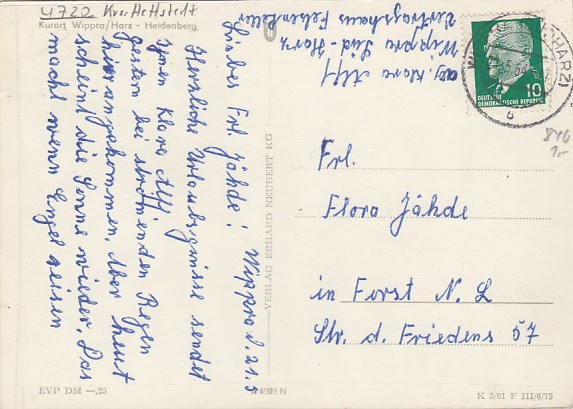 4720 Krs. Hettstedt
Kurort Wippra/Harz - Heidenberg
Wippra d. 21.5
Liebes Frl. Jähde!
Herzliche Urlaubsgrüsse sendet
Ihnen Klara Alff
gestern bei strömenden Regen
hier angekommen. Aber heut
scheint die Sonne wieder. Das
macht wenn Engel reisen
Abs. Klara Alff
Wippra Süd-Harz
Vertragshaus Felsenkeller
VERLAG ERHARD NEUBERT KG
(HARZ)
10
DEUTSCHE
DEMOKRATISCHE REPUBLIK
b
846
1.-
Frl.
Flora Jähde
in Forst N. L
Str. d. Friedens 57
EVP DM —,25
K 5/61 F III/6/75